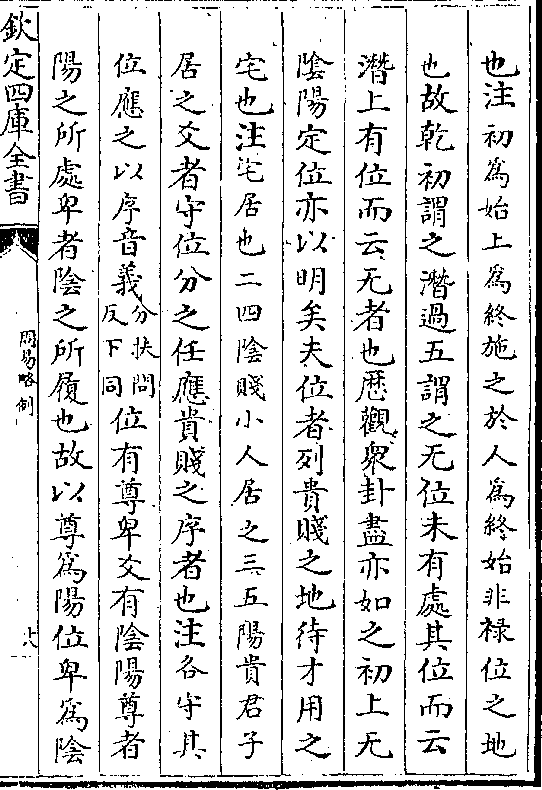 也注初為始上為終施之於人為終始非祿位之地
也故乾初謂之潛過五謂之无位未有處其位而云
潛上有位而云无者也歴觀衆卦盡亦如之初上无
陰陽定位亦以明矣夫位者列貴賤之地待才用之
宅也注宅居也二四陰賤小人居之三五陽貴君子
居之爻者守位分之任應貴賤之序者也注各守其
位應之以序音義分扶問反下同位有尊卑爻有陰陽尊者
陽之所處卑者陰之所履也故以尊為陽位卑為陰
欽定四庫全書
周易略例